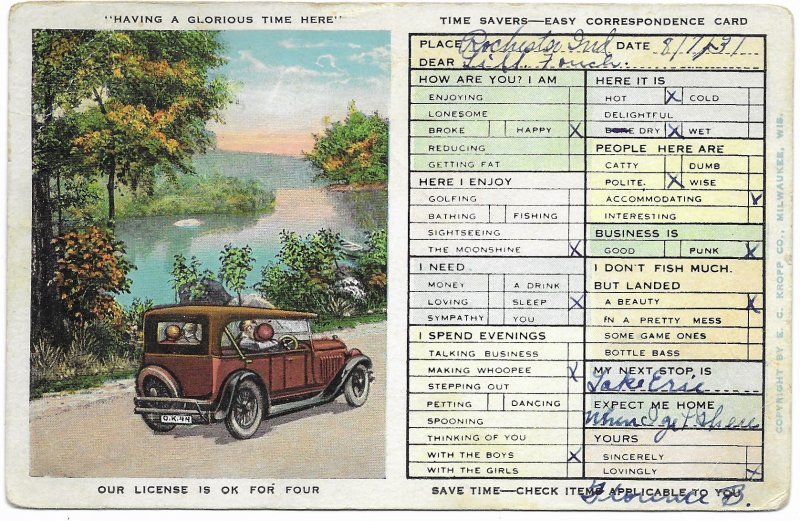 "HAVING A GLORIOUS TIME HERE"
O.K.-44
OUR LICENSE IS OK FOR FOUR
TIME SAVERS—EASY CORRESPONDENCE CARD
PLACE Rochester Ind DATE 8/7/31
DEAR
HOW ARE YOU? I AM
ENJOYING
LONESOME
BROKE HAPPY X
REDUCING
GETTING FAT
HERE I ENJOY
GOLFING
BATHING FISHING
SIGHTSEEING
THE MOONSHINE X
I NEED
MONEY A DRINK
LOVING SLEEP X
SYMPATHY YOU
I SPEND EVENINGS
TALKING BUSINESS
MAKING WHOOPEE X
STEPPING OUT
PETTING DANCING
SPOONING
THINKING OF YOU
WITH THE BOYS X
WITH THE GIRLS
HERE IT IS
HOT X COLD
DELIGHTFUL
BONE DRY X WET
PEOPLE HERE ARE
CATTY DUMB
POLITE. X WISE
ACCOMMODATING X
INTERESTING
BUSINESS IS
GOOD PUNK X
I DON'T FISH MUCH.
BUT LANDED
A BEAUTY X
IN A PRETTY MESS
SOME GAME ONES
BOTTLE BASS
MY NEXT STOP IS
Lake Erie
EXPECT ME HOME
When I get there
YOURS
SINCERELY
LOVINGLY X
SAVE TIME—CHECK ITEMS APPLICABLE TO YOU
Florence B.
COPYRIGHT BY E. C. KROPP CO., MILWAUKEE, WIS.